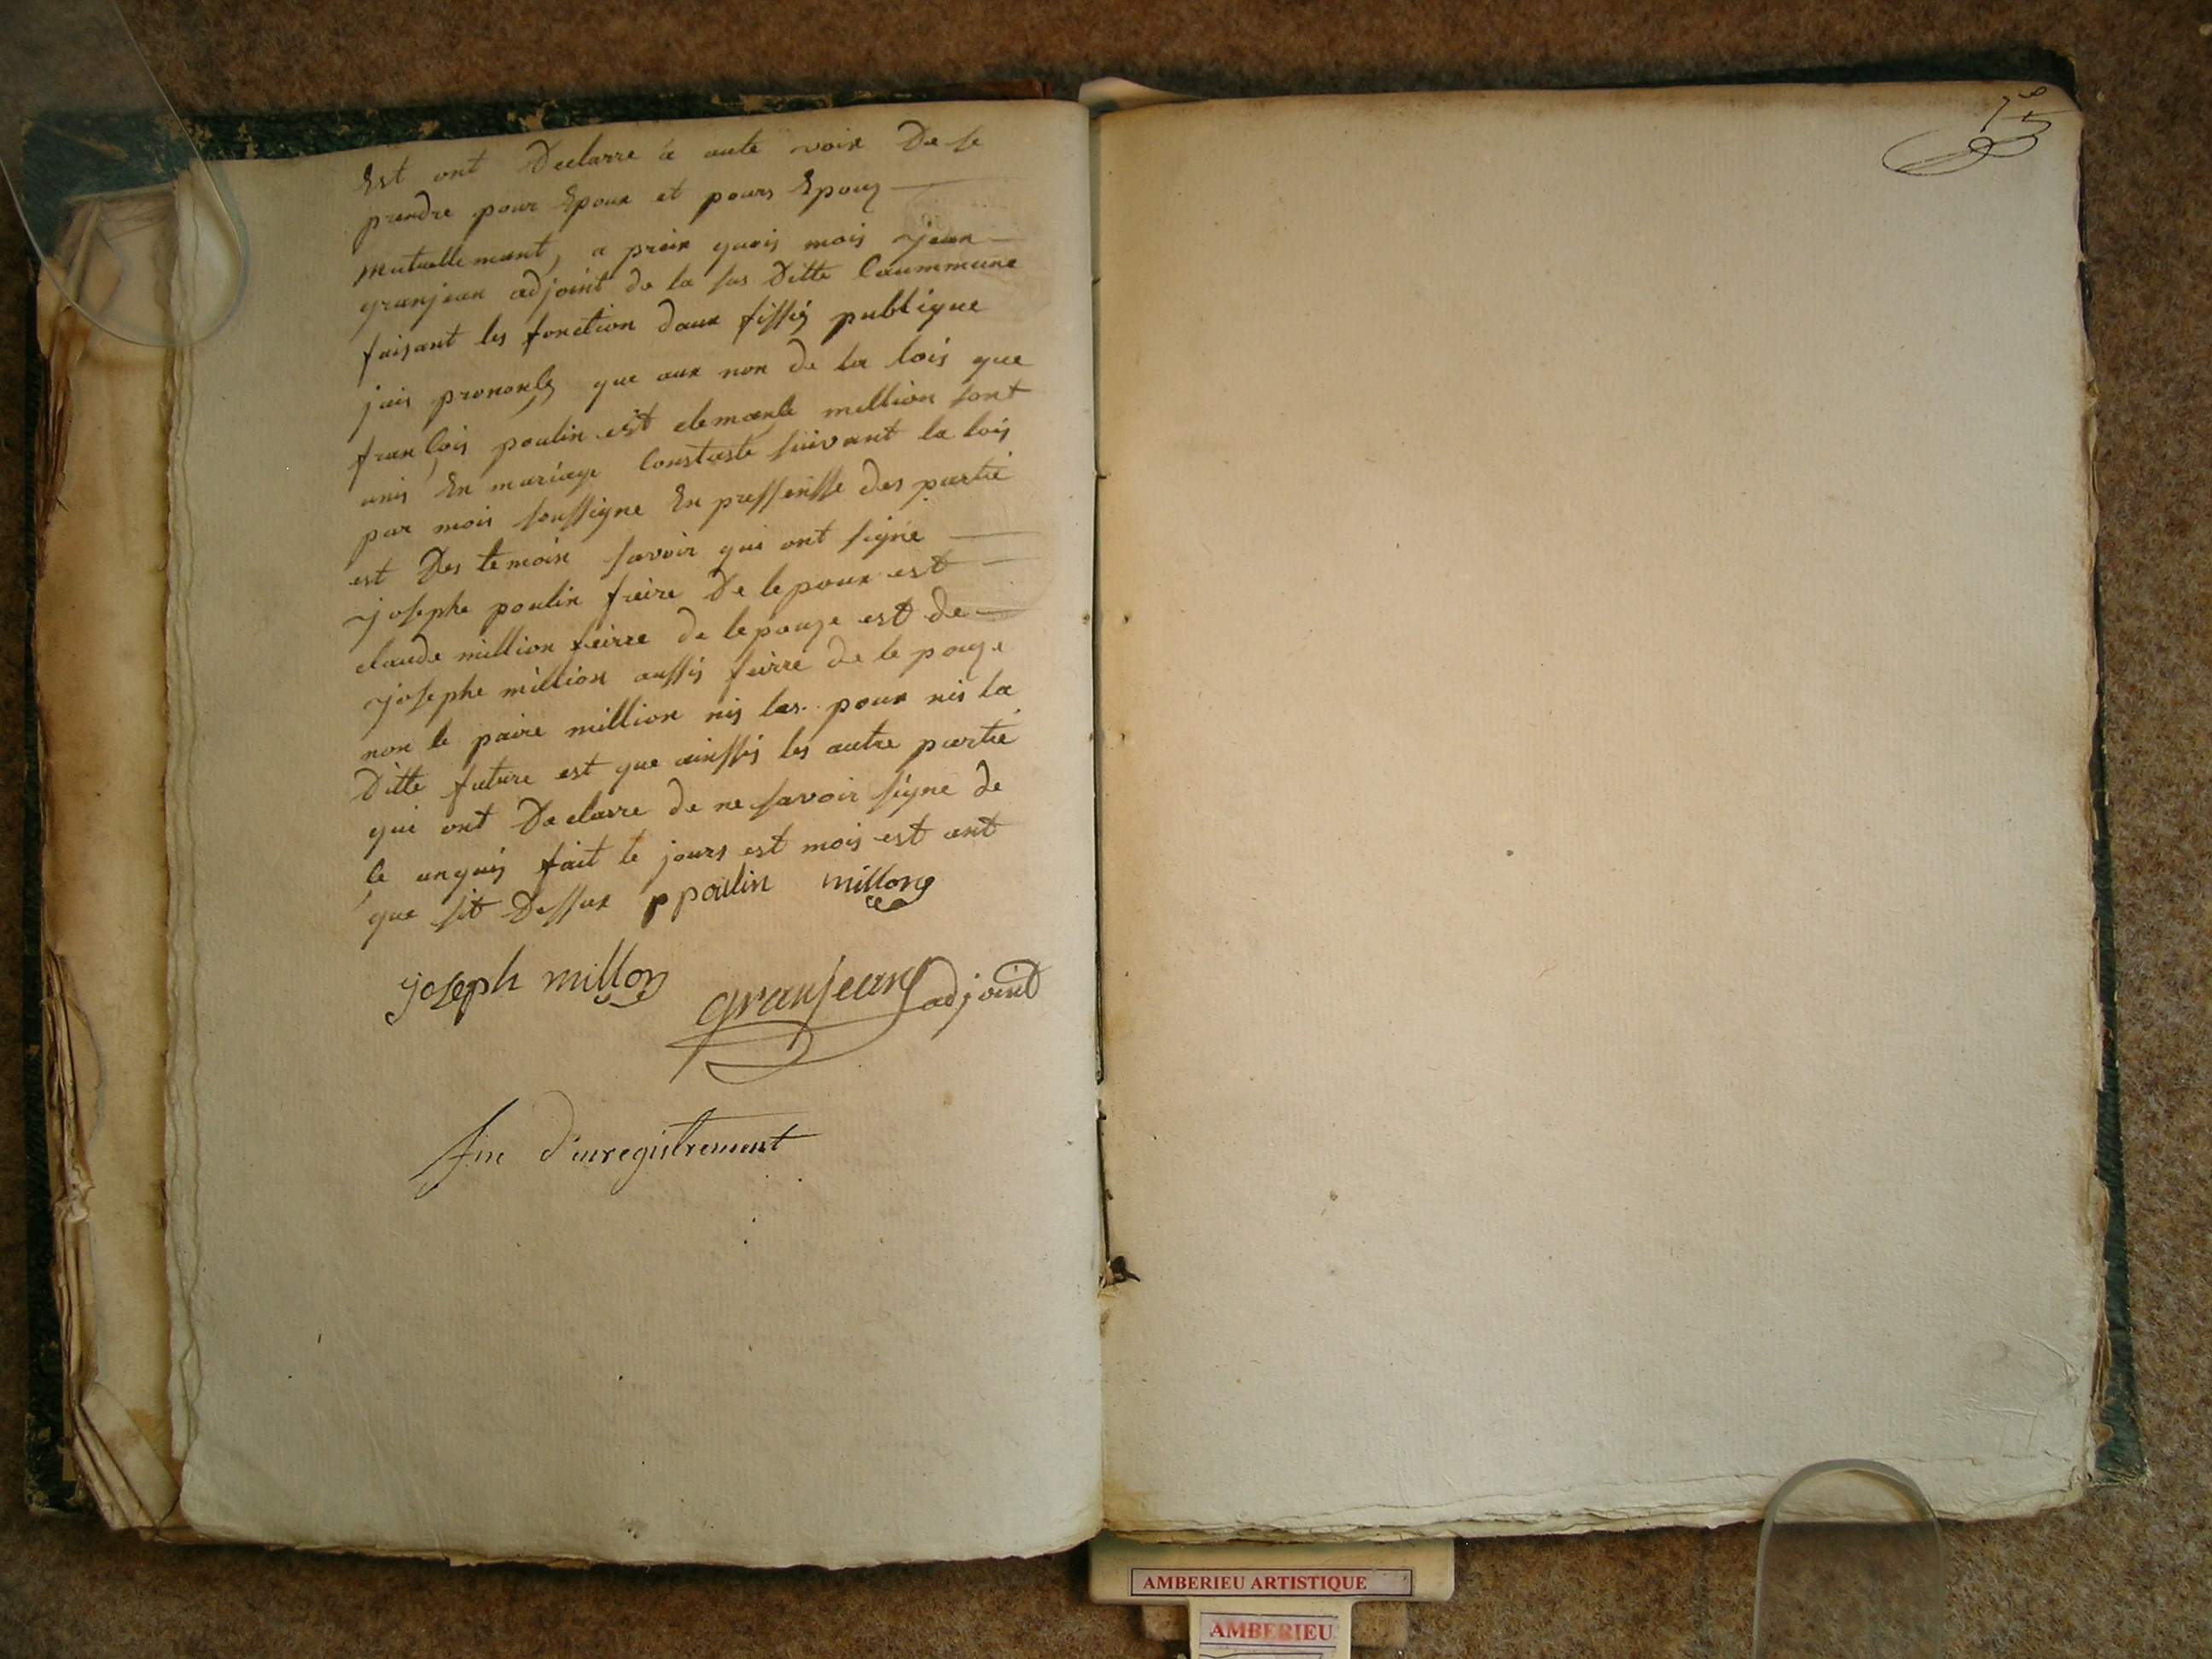 Est ont Declarre a aute voix De se
prendre pour Epoux et pours Epouz
mutuellement, a preix quois mois jean
granjean adjoint de la sus Ditte Caummune
faisant les fonction daux fissiez publique
jais prononcez que aux non de la lois que
françois poulin est clemance million sont
unis En mariage Constaste suivant la lois
par mois soussigne En pressensse des partié
est Des temoin savoir qui ont signé
josephe poulin freire De lepoux est
claude million freirre de lepouze est de
josephe million aussis freirre de le pouze
non le paire million nis les poux nis la
Ditte future est que ainssis les autre partié
qui ont Declarre de ne savoir signe de
ce unquis fait le jours est mois est ant
que sit Dessux ppoulin millon
joseph millon granjean adjoint
fin d'enregistrement
AMBERIEU ARTISTIQUE
AMBERIEU